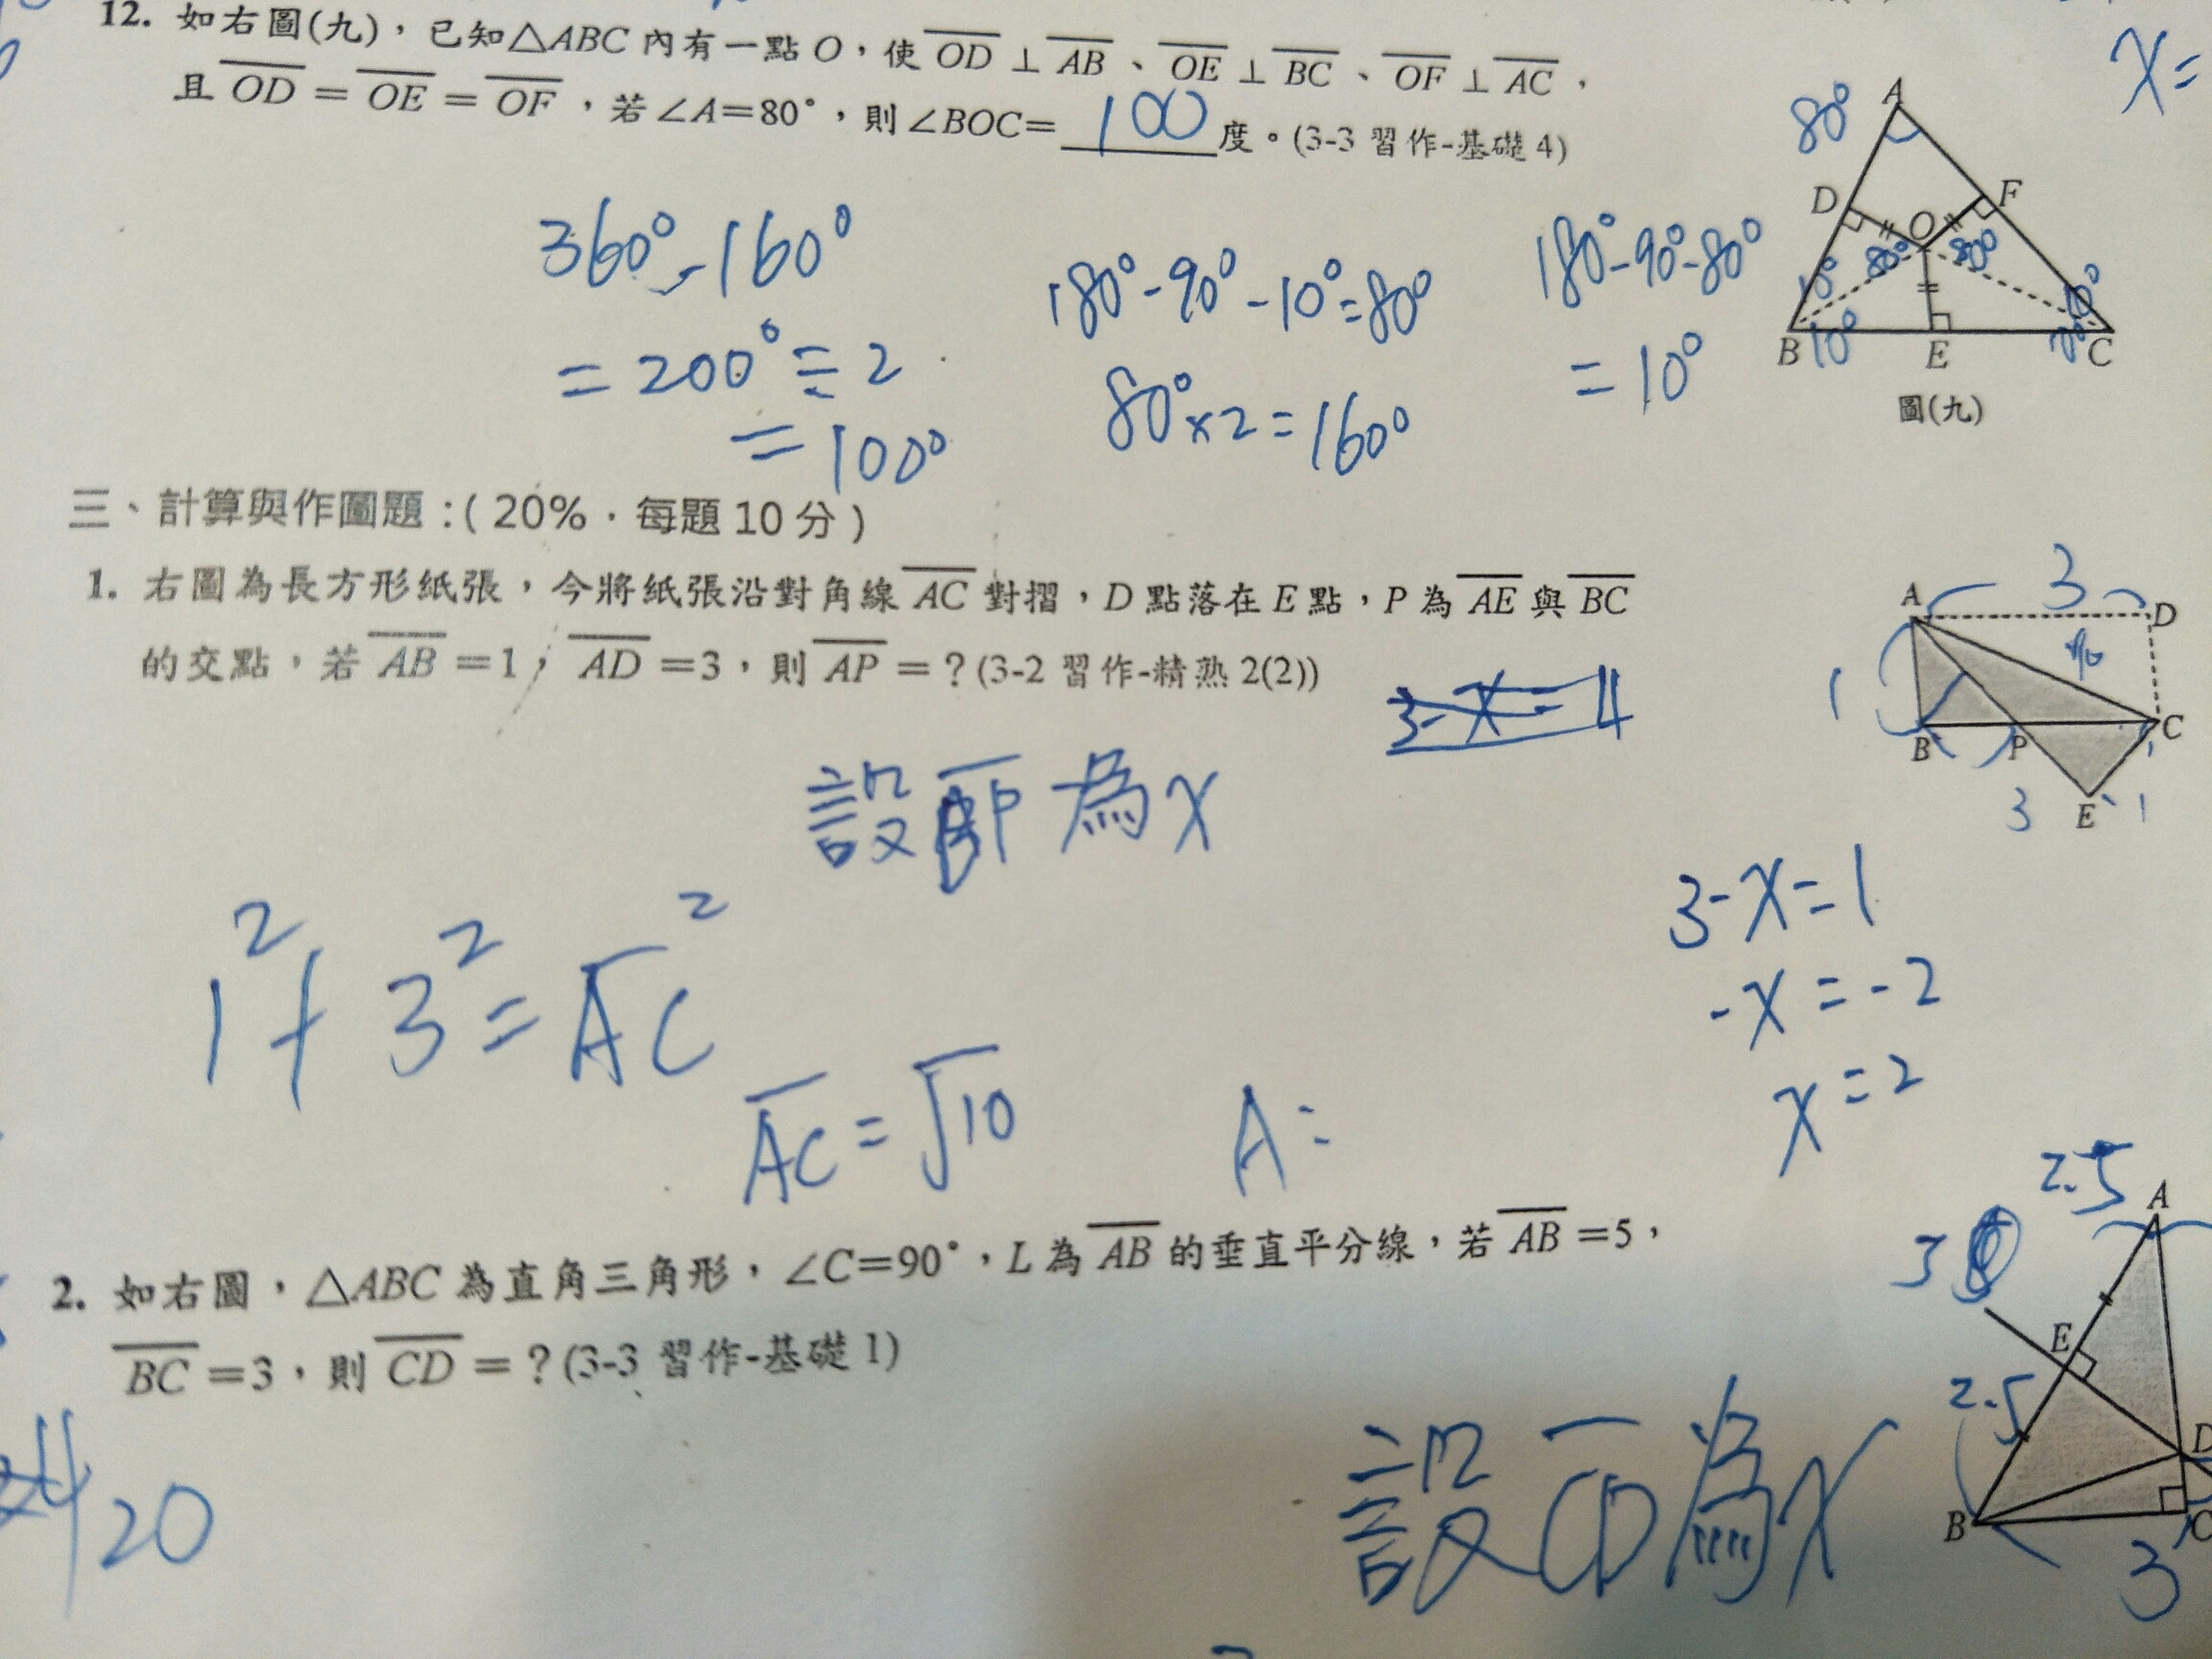 12. 如右圖(九)，已知△ABC 內有一點 O，使 OD ⊥ AB、OE ⊥ BC、OF ⊥ AC，
且 OD = OE = OF，若∠A=80°，則∠BOC= 100 度。(3-3 習作-基礎 4)
x=
80°
A
D
F
O
80° 80°
10°
10°
B
E
C
圖(九)
360°-160°
= 200° ÷ 2
= 100°
180°-90°-10°=80°
80°×2=160°
180°-90°-80°
= 10°
三、計算與作圖題：( 20%．每題 10 分 )
1. 右圖為長方形紙張，今將紙張沿對角線 AC 對摺，D 點落在 E 點，P 為 AE 與 BC
的交點，若 AB =1， AD =3，則 AP = ? (3-2 習作-精熟 2(2))
A
3
D
1
B
P
C
3
E
1
設 為 x
3-x=1
-x=-2
x=2
1²+3²=AC²
AC=√10
A=
2. 如右圖，△ABC 為直角三角形，∠C=90°，L 為 AB 的垂直平分線，若 AB =5，
BC =3，則 CD = ? (3-3 習作-基礎 1)
2.5
A
3
E
2.5
D
B
C
3
設 CD 為 x
20